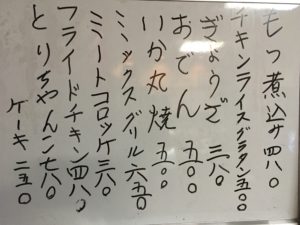 もつ煮込み四八〇
チキンライスグラタン五〇〇
ぎょうざ三八〇
おでん五〇〇
いか丸焼五〇〇
ミックスグリル六五〇
ミートコロッケ三六〇
フライドチキン四八〇
とりちゃんこ七八〇
ケーキ二五〇